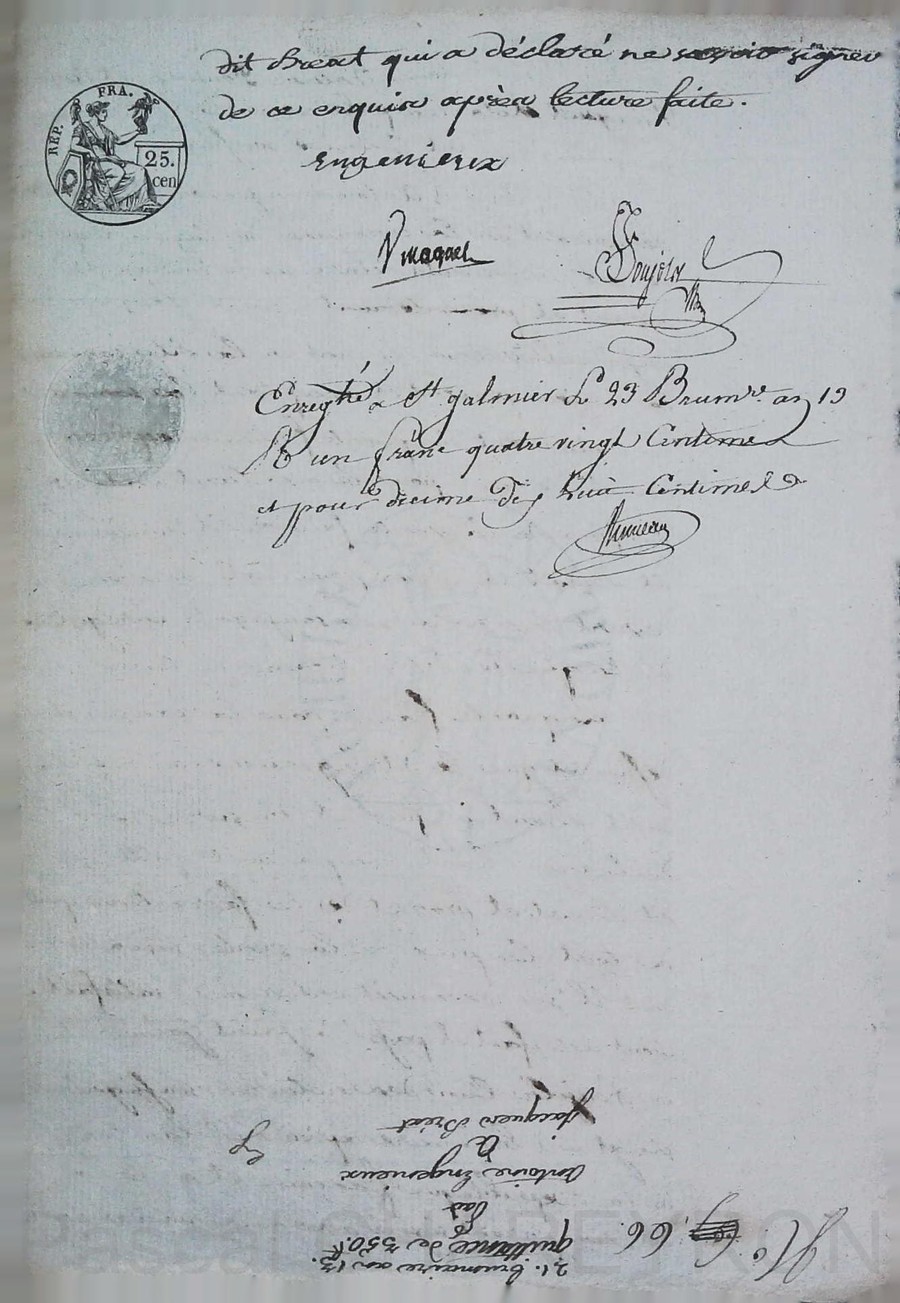 dit Breat qui a déclaré ne savoir signer
de ce enquis après lecture faite.
REP. FRA.
25.
cen
Engenieux
Enregtré a St galmier le 23 Brumre. an 13
R un franc quatre vingt Centimes
et pour decime dix huit Centimes
21. brumaire an 13.
quittance de 350 f.
par
Antoine Engenieux
a
Jacques Breat
No. 66.